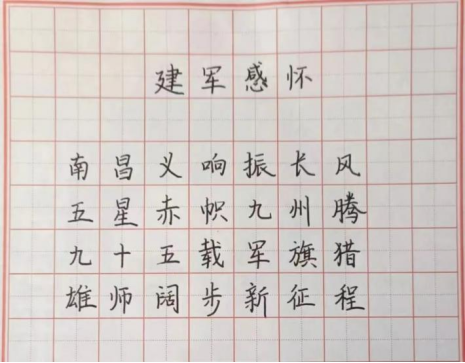 建军感怀
南昌义响振长风
五星赤帜九州腾
九十五载军旗猎
雄师阔步新征程